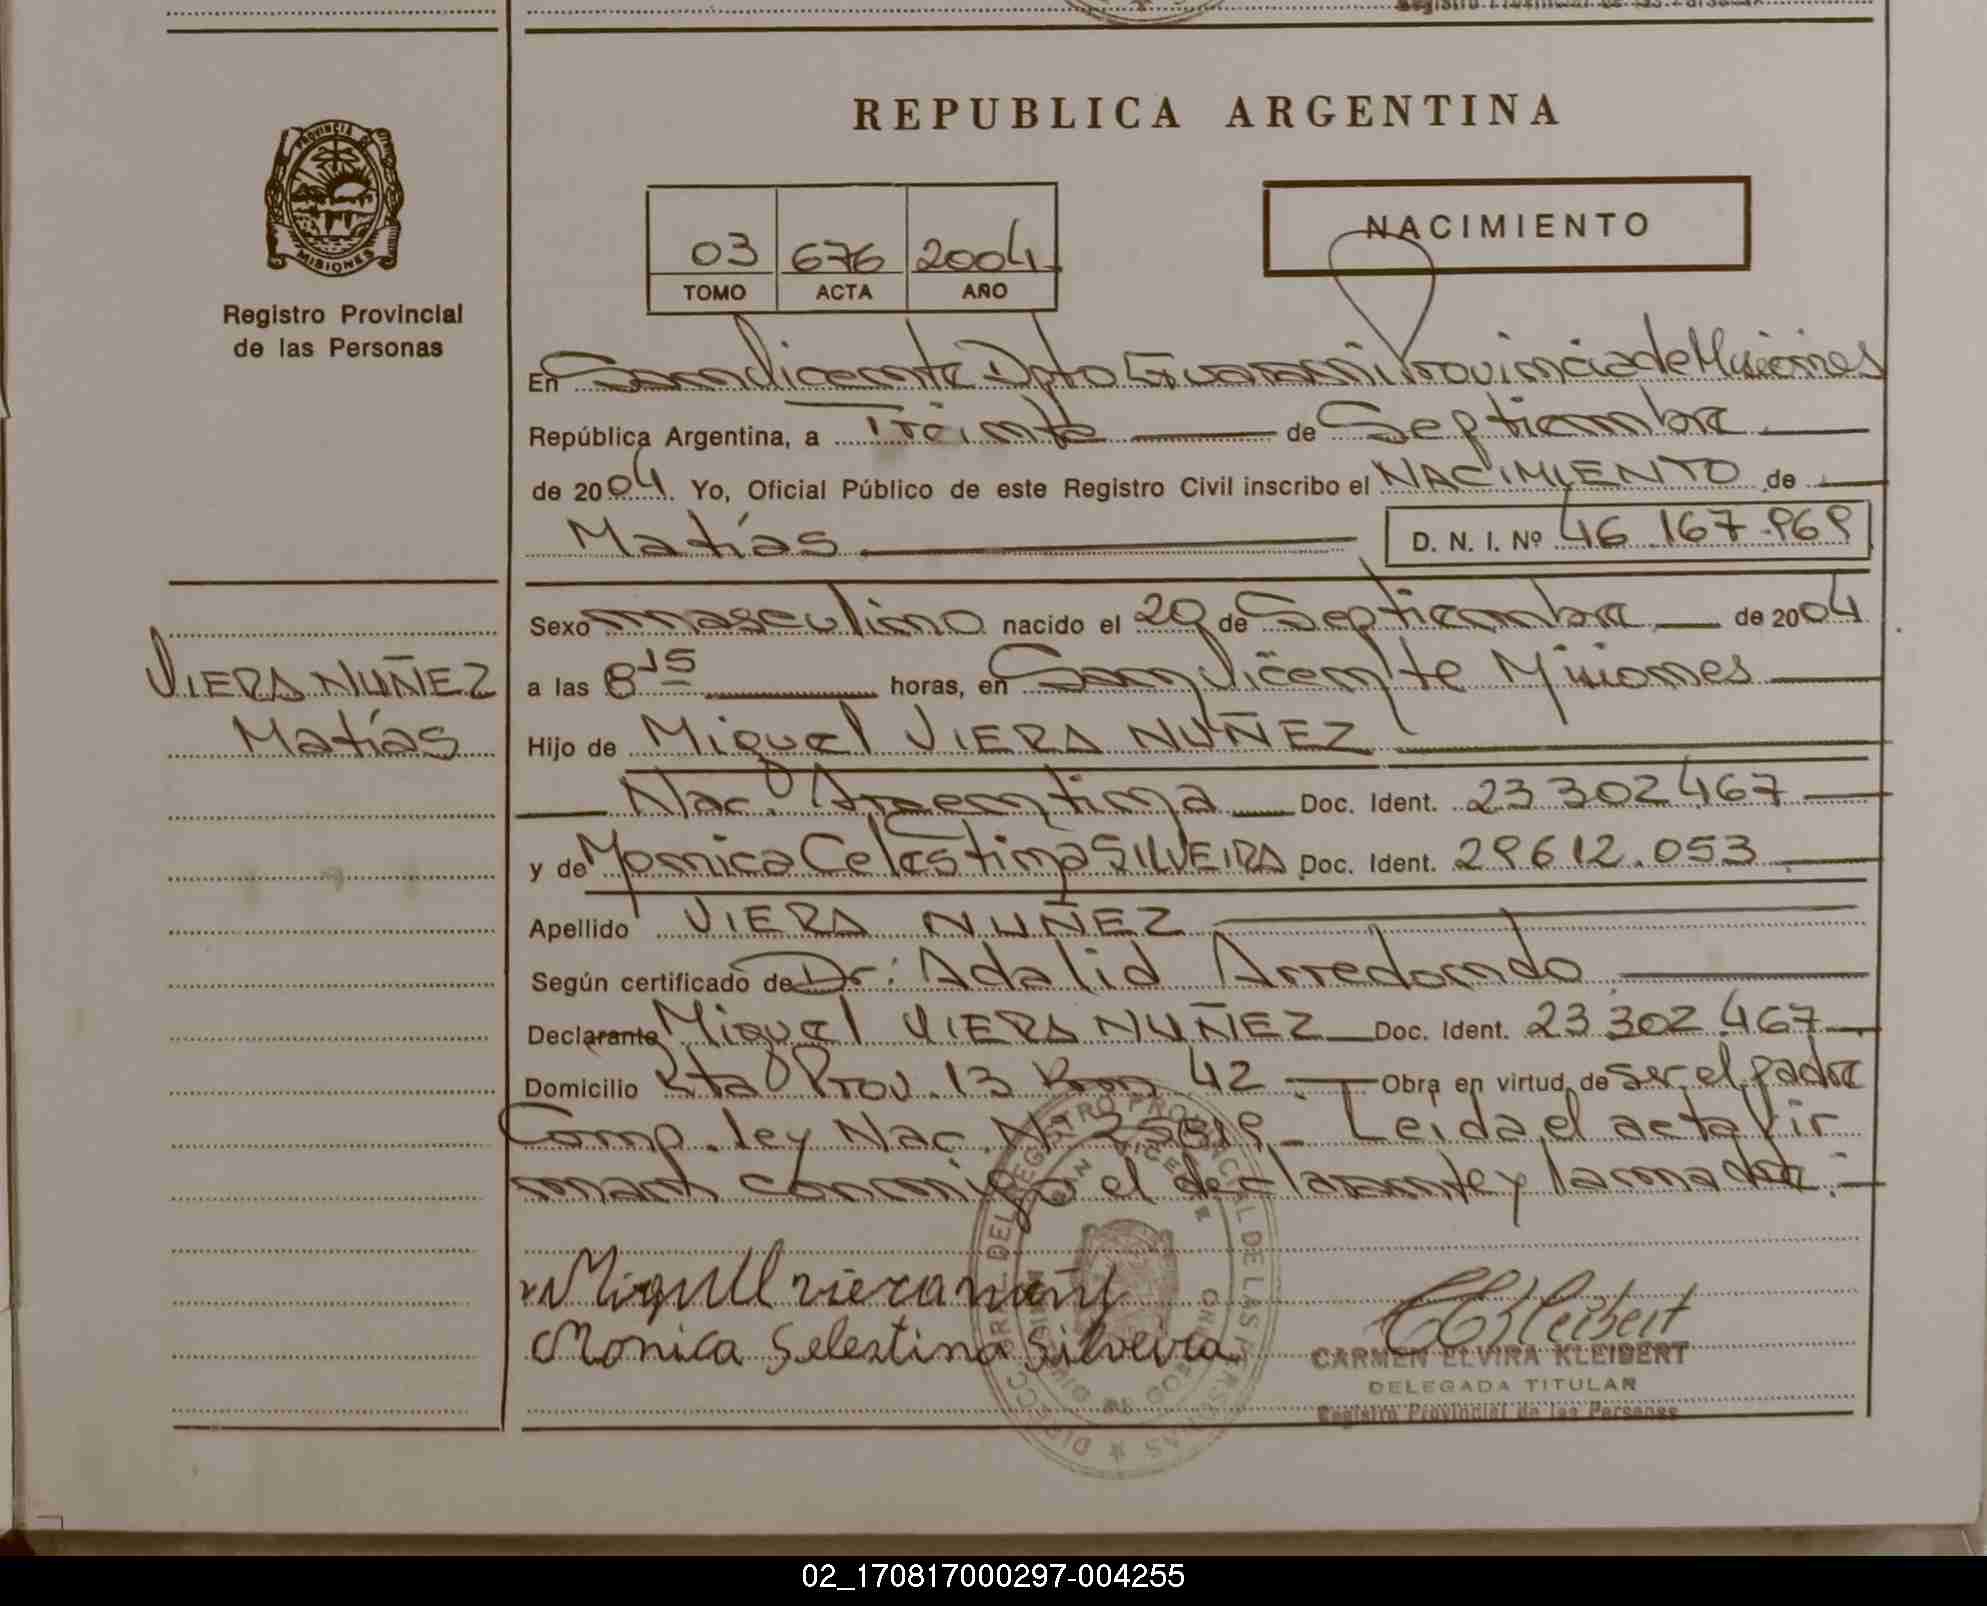 REPUBLICA ARGENTINA
PROVINCIA DE
MISIONES
Registro Provincial
de las Personas
NACIMIENTO
03 676 2004
TOMO ACTA AÑO
En San Vicente Dpto Guarani Provincia de Misiones
República Argentina, a Treinta de Septiembre
de 2004. Yo, Oficial Público de este Registro Civil inscribo el NACIMIENTO de
Matías D. N. I. Nº 46.167.969
Sexo masculino nacido el 20 de Septiembre de 2004
VIERA NUÑEZ
Matías
a las 8 15 horas, en San Vicente Misiones
Hijo de Miguel VIERA NUÑEZ
Nac. Argentina Doc. Ident. 23 302 467
y de Monica Celestina SILVEIRA Doc. Ident. 29 612.053
Apellido VIERA NUÑEZ
Según certificado de Dr: Adalid Arredondo
Declarante Miguel VIERA NUÑEZ Doc. Ident. 23 302.467
Domicilio Rta Prov. 13 Km 42 Obra en virtud de ser el padre
Comp. ley Nac. Nº 25819 - Leida el acta fir
man conmigo el declarante y la madre.-
Miguel viera
Monica Selestina Silveira
CARMEN ELVIRA KLEIBERT
DELEGADA TITULAR
Registro Provincial de las Personas
02_170817000297-004255